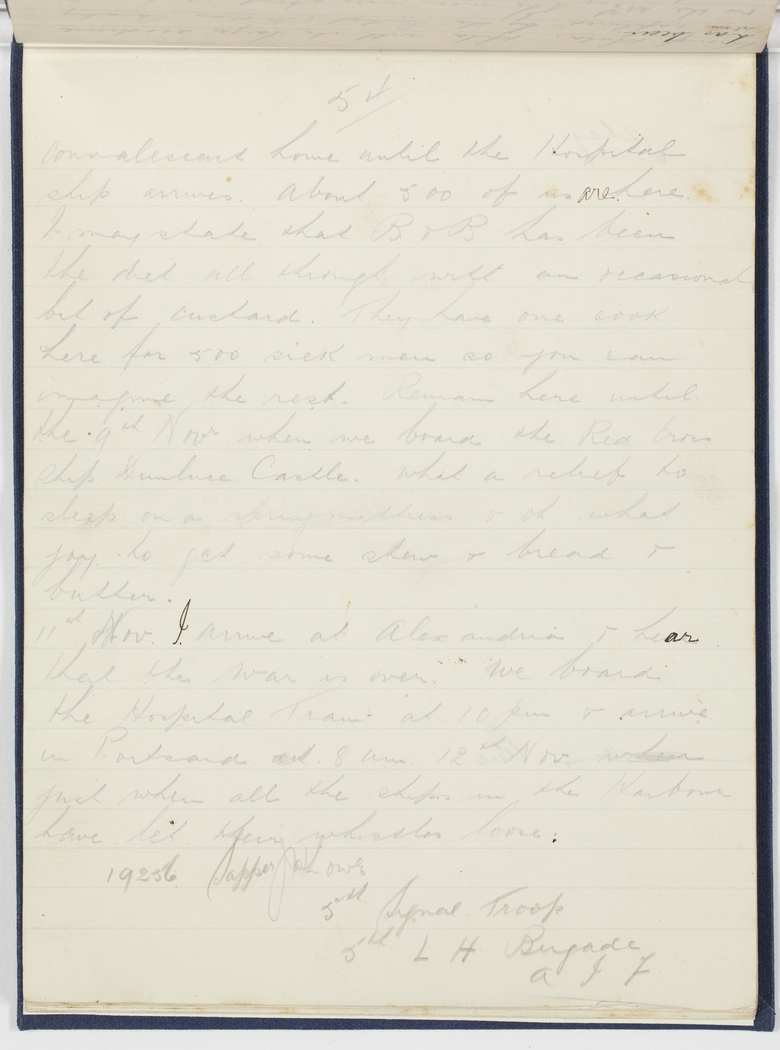 54
convalescent home until the Hospital
ship arrives. About 500 of us are here.
I may state that B & B has been
the diet all through with an occasional
bit of custard. They have one cook
here for 500 sick men so you can
imagine the rest. Remain here until
the 9th Nov when we board the Red Cross
ship Dunluce Castle. What a relief to
sleep on a spring mattress & oh what
joy to get some stew & bread &
butter.
11th Nov. I arrive at Alexandria & hear
that the War is over. We board
the Hospital Train at 10 pm & arrive
in Portsaid at 8 am. 12th Nov when
just when all the ships in the Harbour
have let their whistles loose.
Sapper
5th Signal Troop
5th L H Brigade
A I F